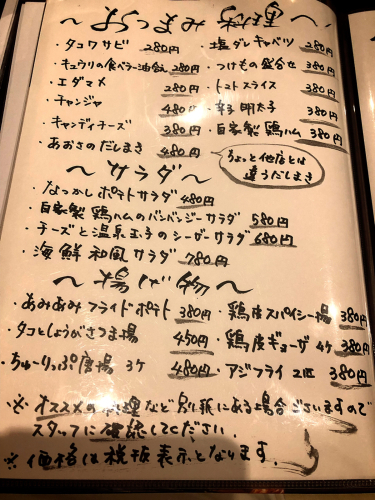 〜おつまみ料理〜
・タコワサビ 280円
・塩ダレキャベツ 280円
・キュウリの食べラー油合え 280円
・つけもの盛合せ 380円
・エダマメ 280円
・トマトスライス 380円
・チャンジャ 480円
・辛子明太子 380円
・キャンディチーズ 380円
・自家製鶏ハム 380円
・あおさのだしまき 480円
ちょっと他店とは
違うだしまき
〜サラダ〜
・なつかしポテトサラダ 480円
・自家製鶏ハムのバンバンジーサラダ 580円
・チーズと温泉玉子のシーザーサラダ 680円
・海鮮和風サラダ 780円
〜揚げ物〜
・あみあみフライドポテト 380円
・鶏皮スパイシー揚 380円
・タコとしょうがさつま揚 450円
・鶏皮ギョーザ 4ケ 380円
・ちゅーりっぷ唐揚 3ケ 480円
・アジフライ 2匹 380円
※ オススメの料理など別紙にある場合ございますので
スタッフに確認してください。
※ 価格は税抜表示となります。